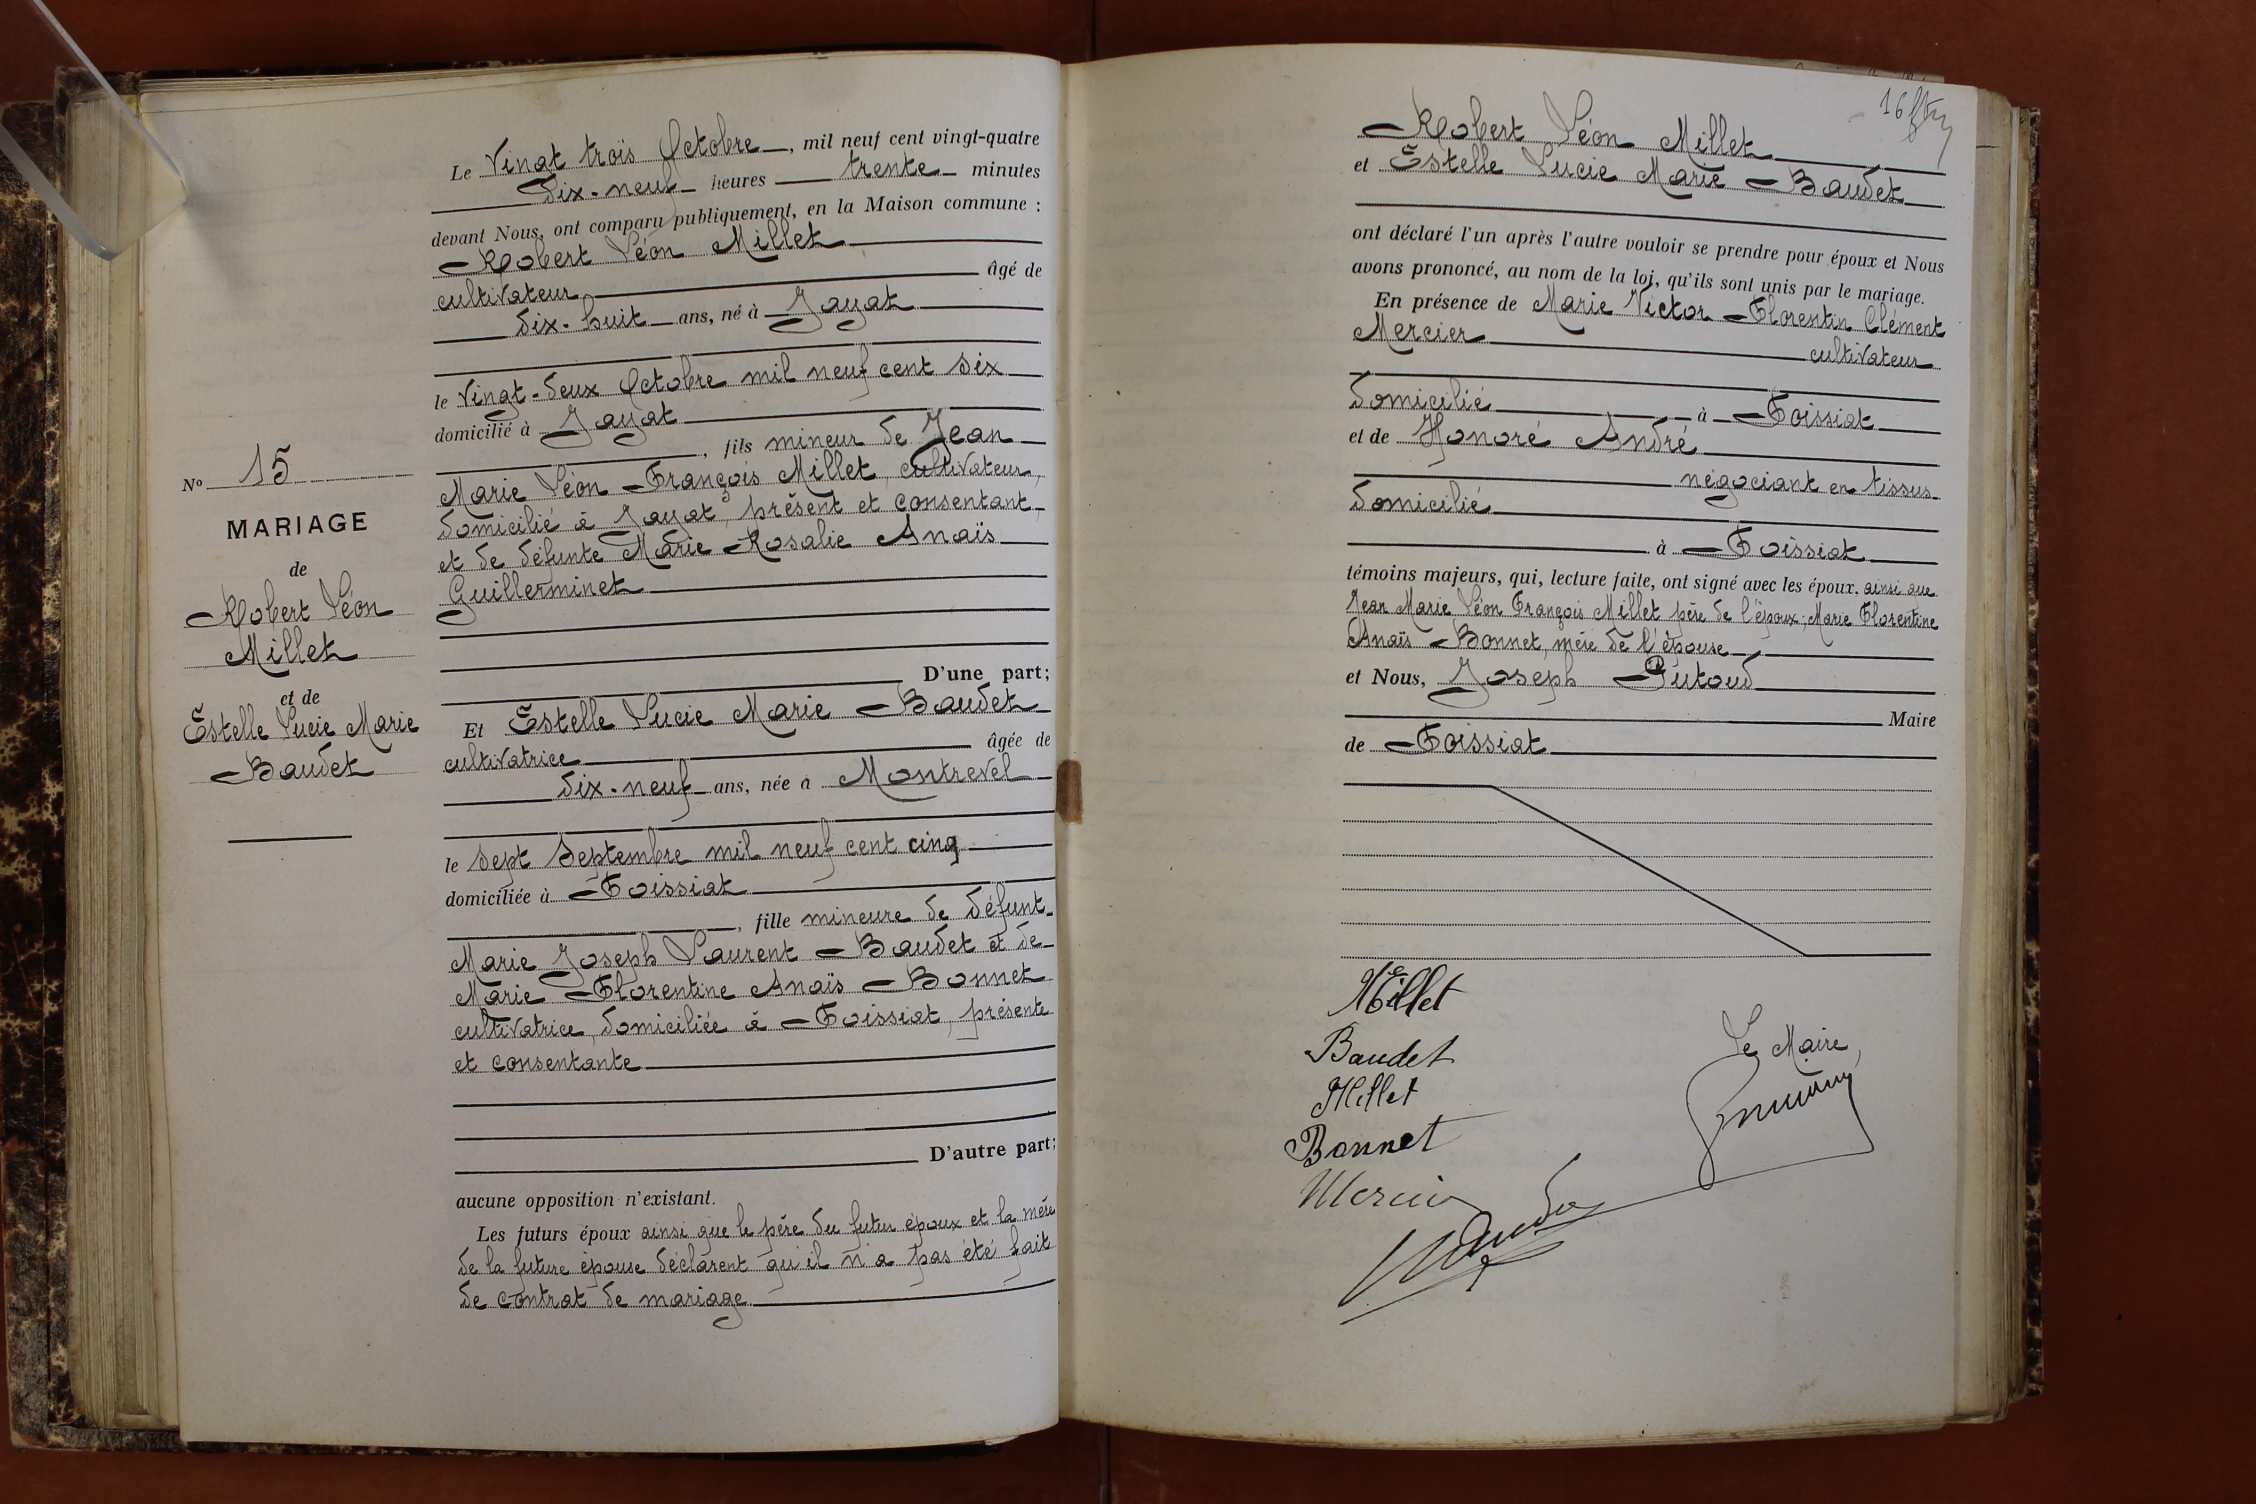 N° 15
MARIAGE
de
Robert Léon
Millet
et de
Estelle Lucie Marie
Baudet
Le Vingt trois Octobre, mil neuf cent vingt-quatre
dix-neuf heures trente minutes
devant Nous, ont comparu publiquement, en la Maison commune :
Robert Léon Millet
cultivateur âgé de
dix-huit ans, né à Jayat
le vingt-deux Octobre mil neuf cent six
domicilié à Jayat
, fils mineur de Jean
Marie Léon François Millet, cultivateur,
domicilié à Jayat, présent et consentant
et de défunte Marie Rosalie Anaïs
Guillerminet
D'une part;
Et Estelle Lucie Marie Baudet
cultivatrice âgée de
dix-neuf ans, née à Montrevel
le sept Septembre mil neuf cent cinq
domiciliée à Foissiat
, fille mineure de défunt
Marie Joseph Laurent Baudet et de
Marie Florentine Anaïs Bonnet
cultivatrice, domiciliée à Foissiat, présente
et consentante
D'autre part;
aucune opposition n'existant.
Les futurs époux ainsi que le père du futur époux et la mère
de la future épouse déclarent qu'il n'a pas été fait
de contrat de mariage
16
Robert Léon Millet
et Estelle Lucie Marie Baudet
ont déclaré l'un après l'autre vouloir se prendre pour époux et Nous
avons prononcé, au nom de la loi, qu'ils sont unis par le mariage.
En présence de Marie Victor Florentin Clément
Mercier cultivateur
domicilié à Foissiat
et de Honoré André
négociant en tissus
domicilié
à Foissiat
témoins majeurs, qui, lecture faite, ont signé avec les époux. ainsi que
Jean Marie Léon François Millet père de l'époux; Marie Florentine
Anaïs Bonnet, mère de l'épouse
et Nous, Joseph Putoud
Maire
de Foissiat
Millet
Baudet
Millet
Bonnet
Mercier
Le Maire,